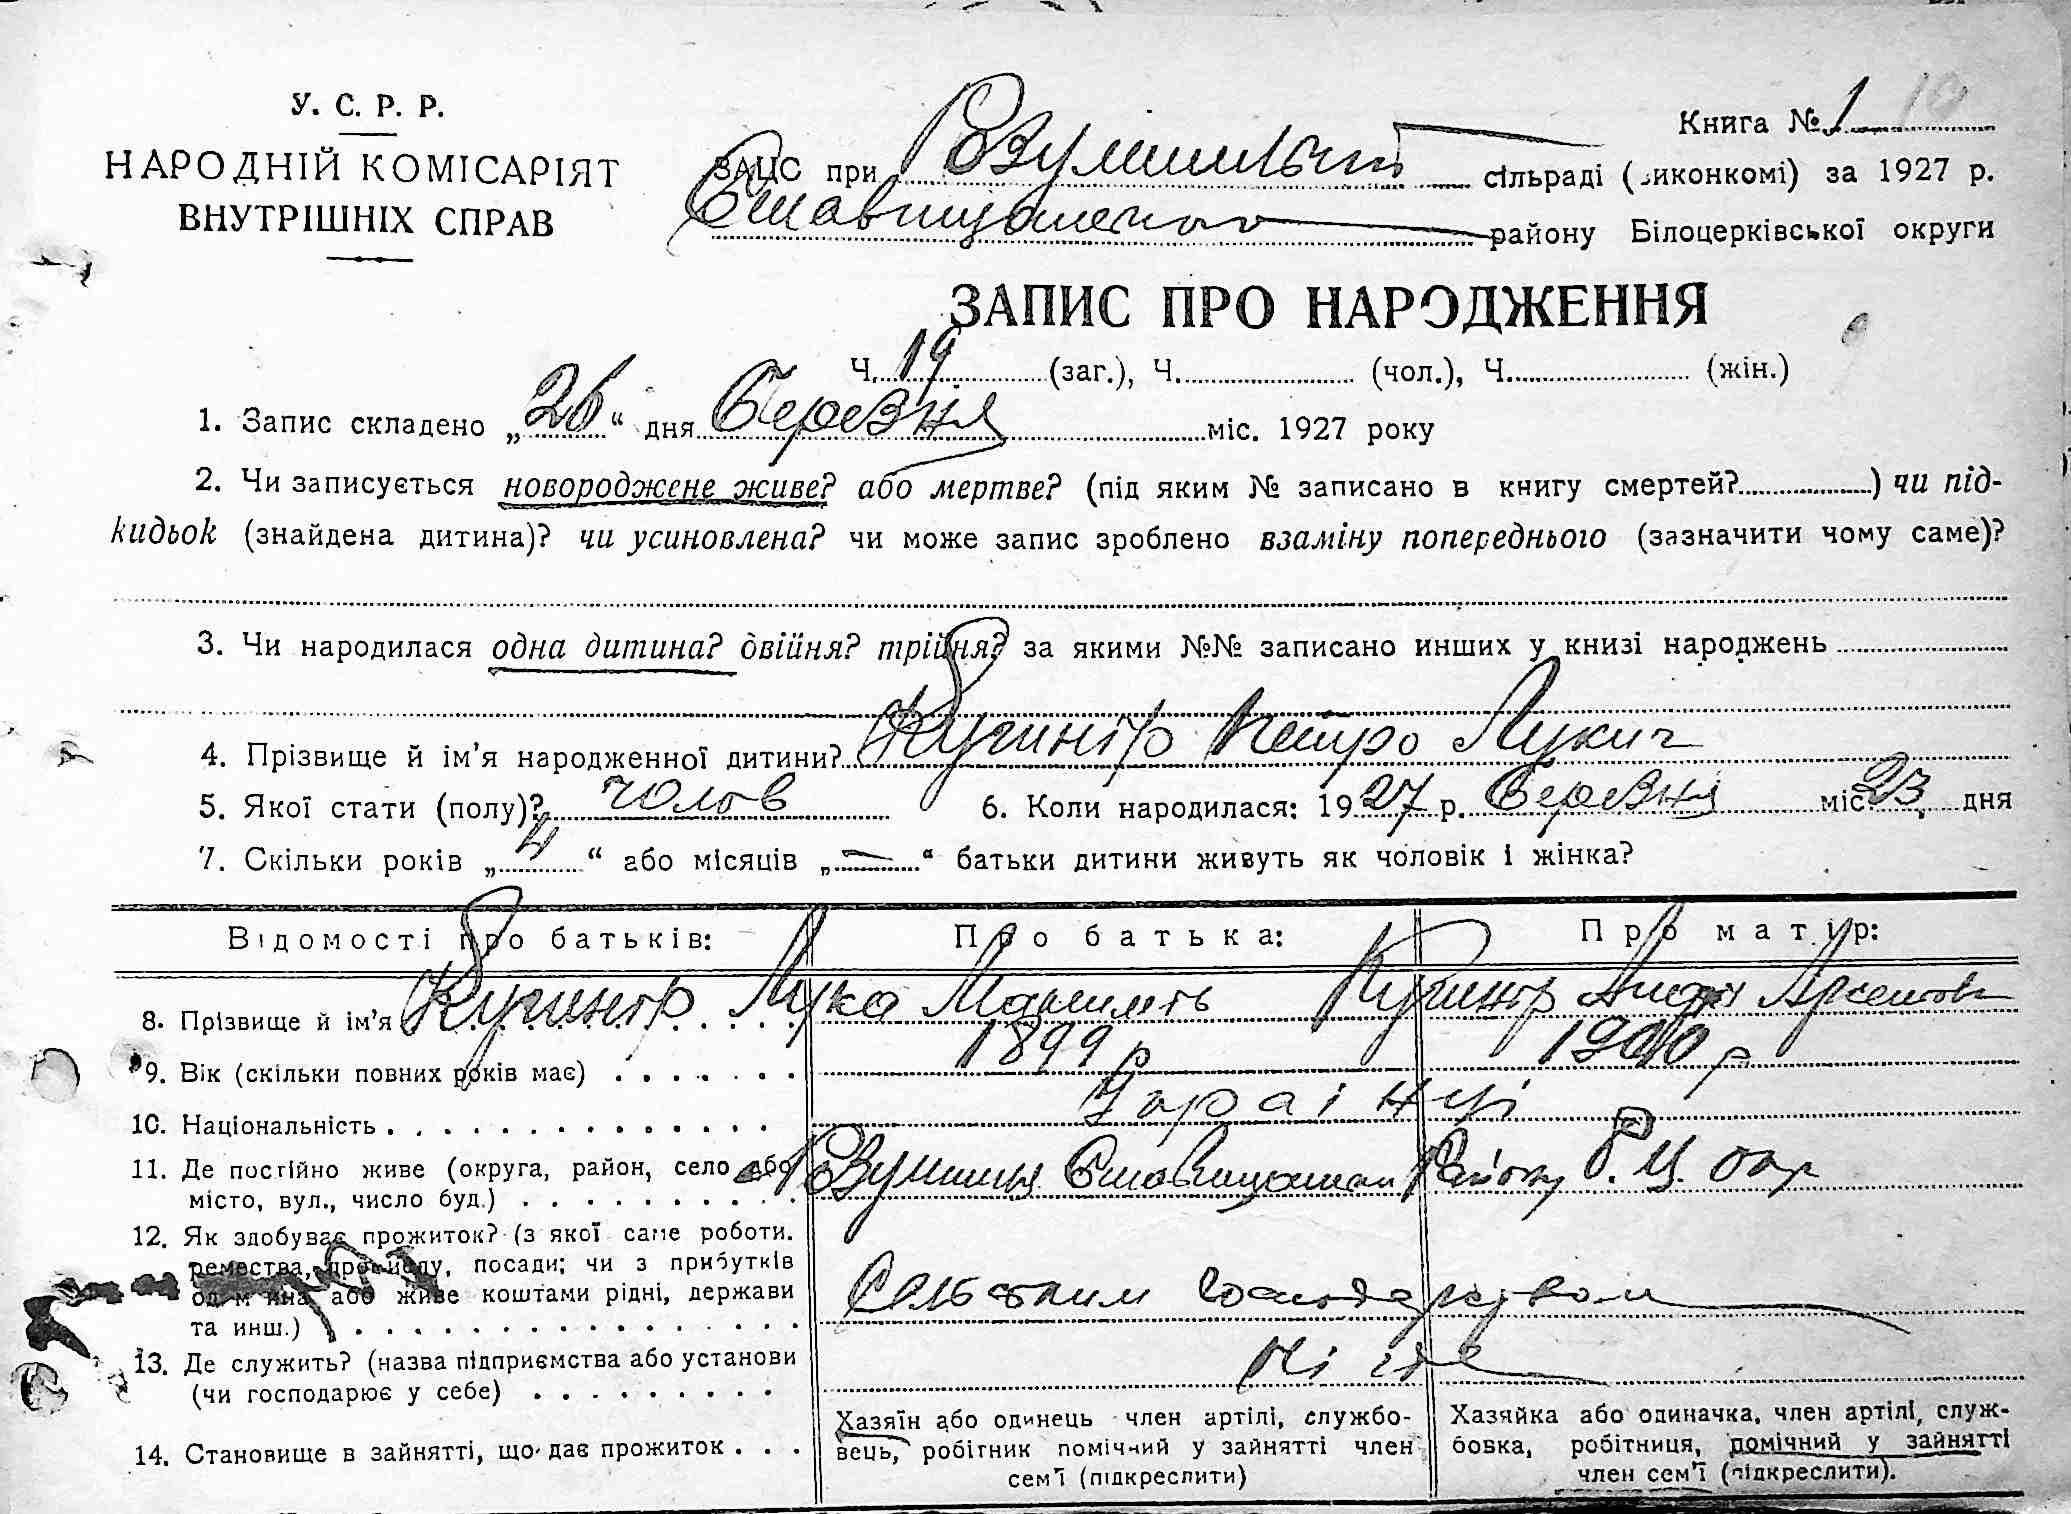 У. С. Р. Р.
НАРОДНІЙ КОМІСАРІЯТ
ВНУТРІШНІХ СПРАВ
Книга № 1
ЗАЦС при сільраді (виконкомі) за 1927 р.
району Білоцерківської округи
ЗАПИС ПРО НАРОДЖЕННЯ
Ч. 19 (заг.), Ч. (чол.), Ч. (жін.)
1. Запис складено „26“ дня Березня міс. 1927 року
2. Чи записується новороджене живе? або мертве? (під яким № записано в книгу смертей?) чи під-
кидьок (знайдена дитина)? чи усиновлена? чи може запис зроблено взаміну попереднього (зазначити чому саме)?
3. Чи народилася одна дитина? двійня? трійня? за якими №№ записано инших у книзі народжень
4. Прізвище й ім'я народженної дитини? Петро Лукич
5. Якої стати (полу)? чолов 6. Коли народилася: 1927 р. Березня міс. 23 дня
7. Скільки років „4“ або місяців „—“ батьки дитини живуть як чоловік і жінка?
Відомості про батьків: Про батька: Про матір:
8. Прізвище й ім'я Лука
9. Вік (скільки повних років має) 1899 р 1900 р
10. Національність Украінці
11. Де постійно живе (округа, район, село або Району Б. Ц. окр
місто, вул., число буд.)
12. Як здобуває прожиток? (з якої саме роботи.
ремества, промислу, посади; чи з прибутків
або живе коштами рідні, держави
та инш.) Сельским
13. Де служить? (назва підприємства або установи
(чи господарює у себе) Ні где
14. Становище в зайнятті, що дає прожиток
Хазяїн або одинець член артілі, службо-
вець, робітник помічний у зайнятті член
сем'ї (підкреслити)
Хазяйка або одиначка, член артілі, служ-
бовка, робітниця, помічний у зайнятті
член сем'ї (підкреслити).